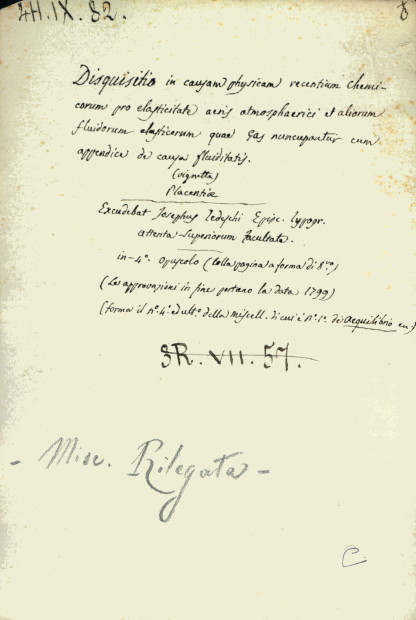 4H.IX.82.
8
Disquisitio in causam physicam recentium Chemi-
corum pro elasticitate aeris atmosphaerici et aliorum
fluidorum elasticorum quae Gas nuncupantur cum
appendice de causa fluiditatis.
(vignetta)
Placentiae
Excudebat Josephus Tedeschi Episc. Typogr.
attenta Superiorum facultate.
in-4°. opuscolo (colla pagina a forma di 8.vo)
(Le approvazioni in fine portano la data 1799)
(forma il n°. 4°. ed ult°. della Miscell. di cui è n°. 1°. de Aequilibrio
3R.VII.57.
- Misc. Rilegata -
C